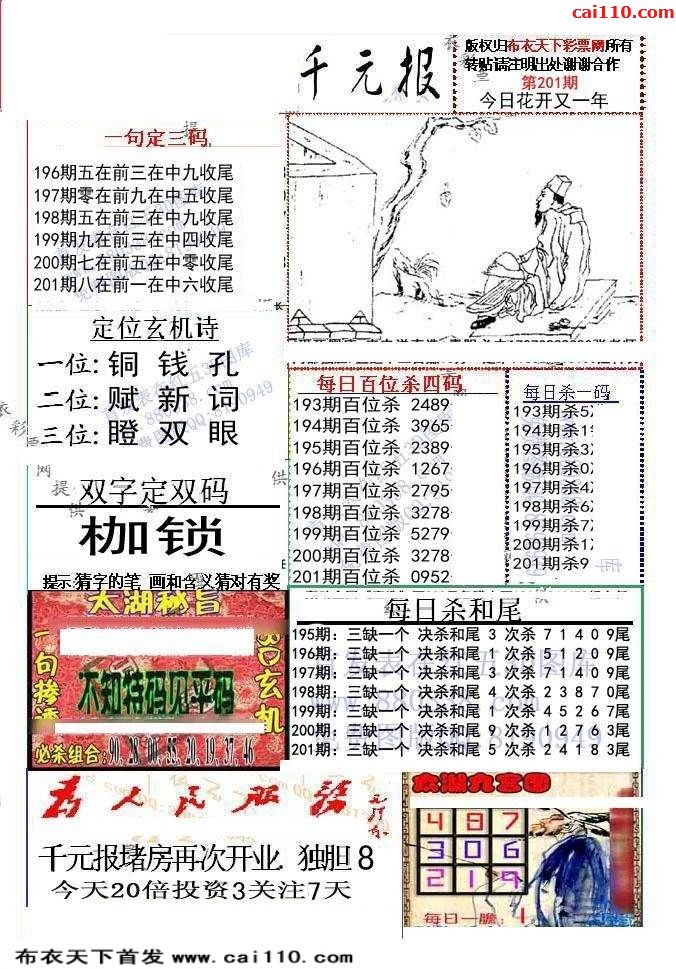 cai110.com
千元报
版权归布衣天下彩票网所有
转贴请注明出处谢谢合作
第201期
今日花开又一年
一句定三码
196期五在前三在中九收尾
197期零在前九在中五收尾
198期五在前三在中九收尾
199期九在前三在中四收尾
200期七在前五在中零收尾
201期八在前一在中六收尾
定位玄机诗
一位: 铜 钱 孔
二位: 赋 新 词
三位: 瞪 双 眼
双字定双码
枷锁
提示:猜字的笔 画和含义猜对有奖
每日百位杀四码
193期百位杀 2489
194期百位杀 3965
195期百位杀 2389
196期百位杀 1267
197期百位杀 2795
198期百位杀 3278
199期百位杀 5279
200期百位杀 3278
201期百位杀 0952
每日杀一码
193期杀5
194期杀1
195期杀3
196期杀0
197期杀4
198期杀6
199期杀7
200期杀1
201期杀9
太湖秘旨
不知特码见平码
必杀组合: 90. 28. 00. 55. 20. 19. 37. 46
每日杀和尾
195期: 三缺一个 决杀和尾 3 次杀 7 1 4 0 9尾
196期: 三缺一个 决杀和尾 1 次杀 5 1 2 0 9尾
198期: 三缺一个 决杀和尾 4 次杀 2 3 8 7 0尾
199期: 三缺一个 决杀和尾 1 次杀 4 5 2 6 7尾
200期: 三缺一个 决杀和尾 9 次杀 1 2 7 6 3尾
201期: 三缺一个 决杀和尾 5 次杀 2 4 1 8 3尾
为人民服务
千元报堵房再次开业 独胆 8
今天20倍投资3关注7天
太湖九宫图
4 8 7
3 0 6
2 1 9
每日一胆: 1
布衣天下首发 www.cai110.com